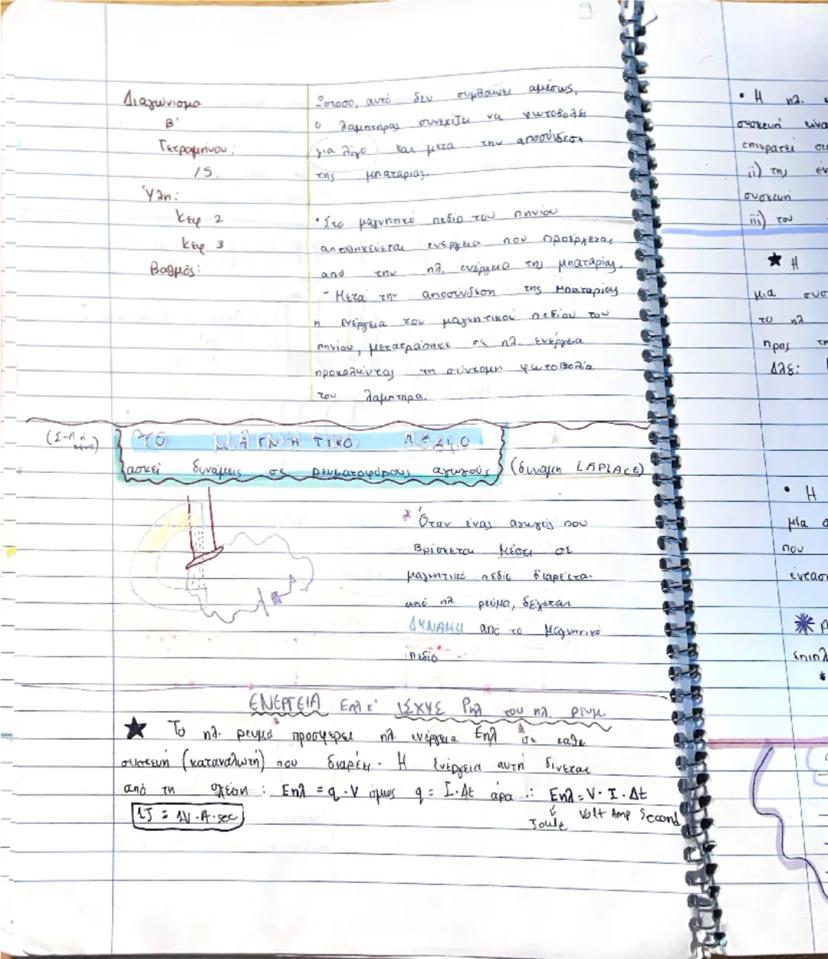 Διαγώνισμα
Β'
Τετραμήνου:
/5.
Ύλη:
Κεφ 2
Κεφ 3
Βαθμός:
Ωστόσο, αυτό δεν συμβαίνει αμέσως,
ο λαμπτήρας συνεχίζει να φωτοβολεί
για λίγο και μετα την αποσύνδεση
της μπαταρίας.
• Στο μαγνητικό πεδίο του πηνίου
αποθηκεύεται ενέργεια που προέρχεται
από την ηλ. ενέργεια της μπαταρίας.
- Μετα την αποσύνδεση της μπαταρίας
η ενέργεια του μαγνητικού πεδίου του
πηνίου, μετατράπηκε σε ηλ. ενέργεια
προκαλώντας τη σύντομη φωτοβολία
του λαμπτήρα.
ΤΟ ΜΑΓΝΗΤΙΚΟ ΠΕΔΙΟ
ασκεί δυνάμεις σε ρευματοφόρους αγωγούς (δυναμη LAPLACE)
* Όταν ένας αγωγός που
βρίσκεται μέσα σε
μαγνητικό πεδίο διαρέεται
από ηλ ρεύμα, δέχεται
ΔΥΝΑΜΗ από το μαγνητικό
πεδίο
ΕΝΕΡΓΕΙΑ Εηλ κ' ΙΣΧΥΣ Ρηλ του ηλ ρευμ
★ Το ηλ. ρευμα προσφερει ηλ ενέργεια Εηλ σε καθε
συσκευή (καταναλωτή) που διαρέει. Η ενέργεια αυτή δίνεται
από τη σχέση: Εηλ = q · V όμως q = I · Δt άρα : Εηλ = V · I · Δt
1J = 1V · A · sec
Joule Volt Amp Second
• Η ηλ.
συσκευή είνα
επικρατεί
ii) της έν
συσκευή
iii) του
★ Η
μια συσ
το ηλ
προς τη
Δλδ:
• Η
μία
που
ένταση